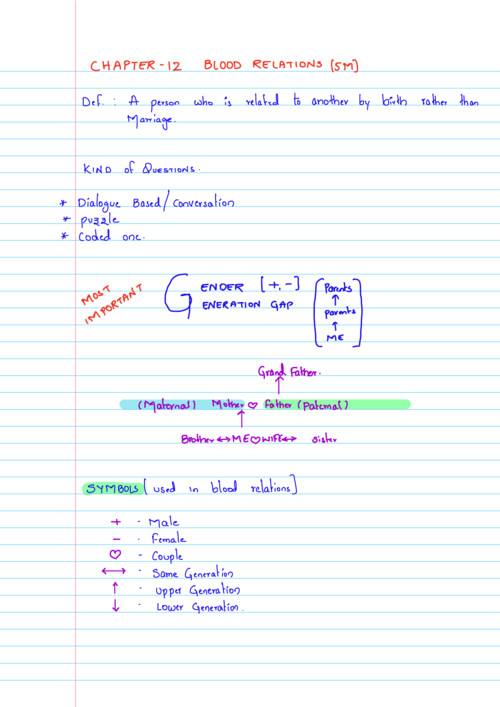 CHAPTER-12 BLOOD RELATIONS [5M]
Def. : A person who is related to another by birth rather than
Marriage.
KIND of QUESTIONS.
* Dialogue Based/Conversation
* puzzle
* Coded one.
MOST IMPORTANT
GENDER [+,-]
GENERATION GAP
Parents
↑
parents
↑
ME
Grand Father.
↑
(Maternal) Mother ♡ Father (paternal)
↑
Brother ↔ ME ♡ WIFE ↔ Sister
SYMBOLS [used in blood relations]
+ - Male
- - Female
♡ - Couple
↔ - Same Generation
↑ - upper Generation
↓ - Lower Generation.